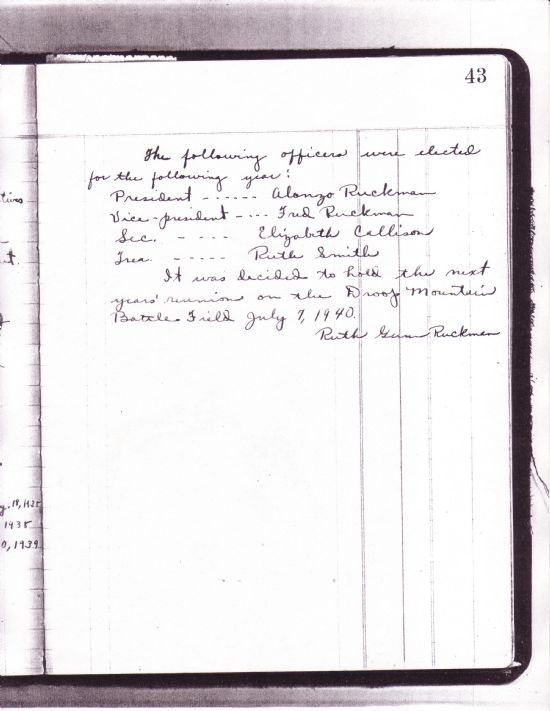 43
The following officers were elected
for the following year:
President ------ Alonzo Ruckman
Vice-president ---- Fred Ruckman
Sec. ----- Elizabeth Callison
Trea. ----- Ruth Smith
It was decided to hold the next
years' reunion on the Droop Mountain
Battle Field July 7, 1940.
Ruth Ruckman
18, 1938
1938
0, 1939